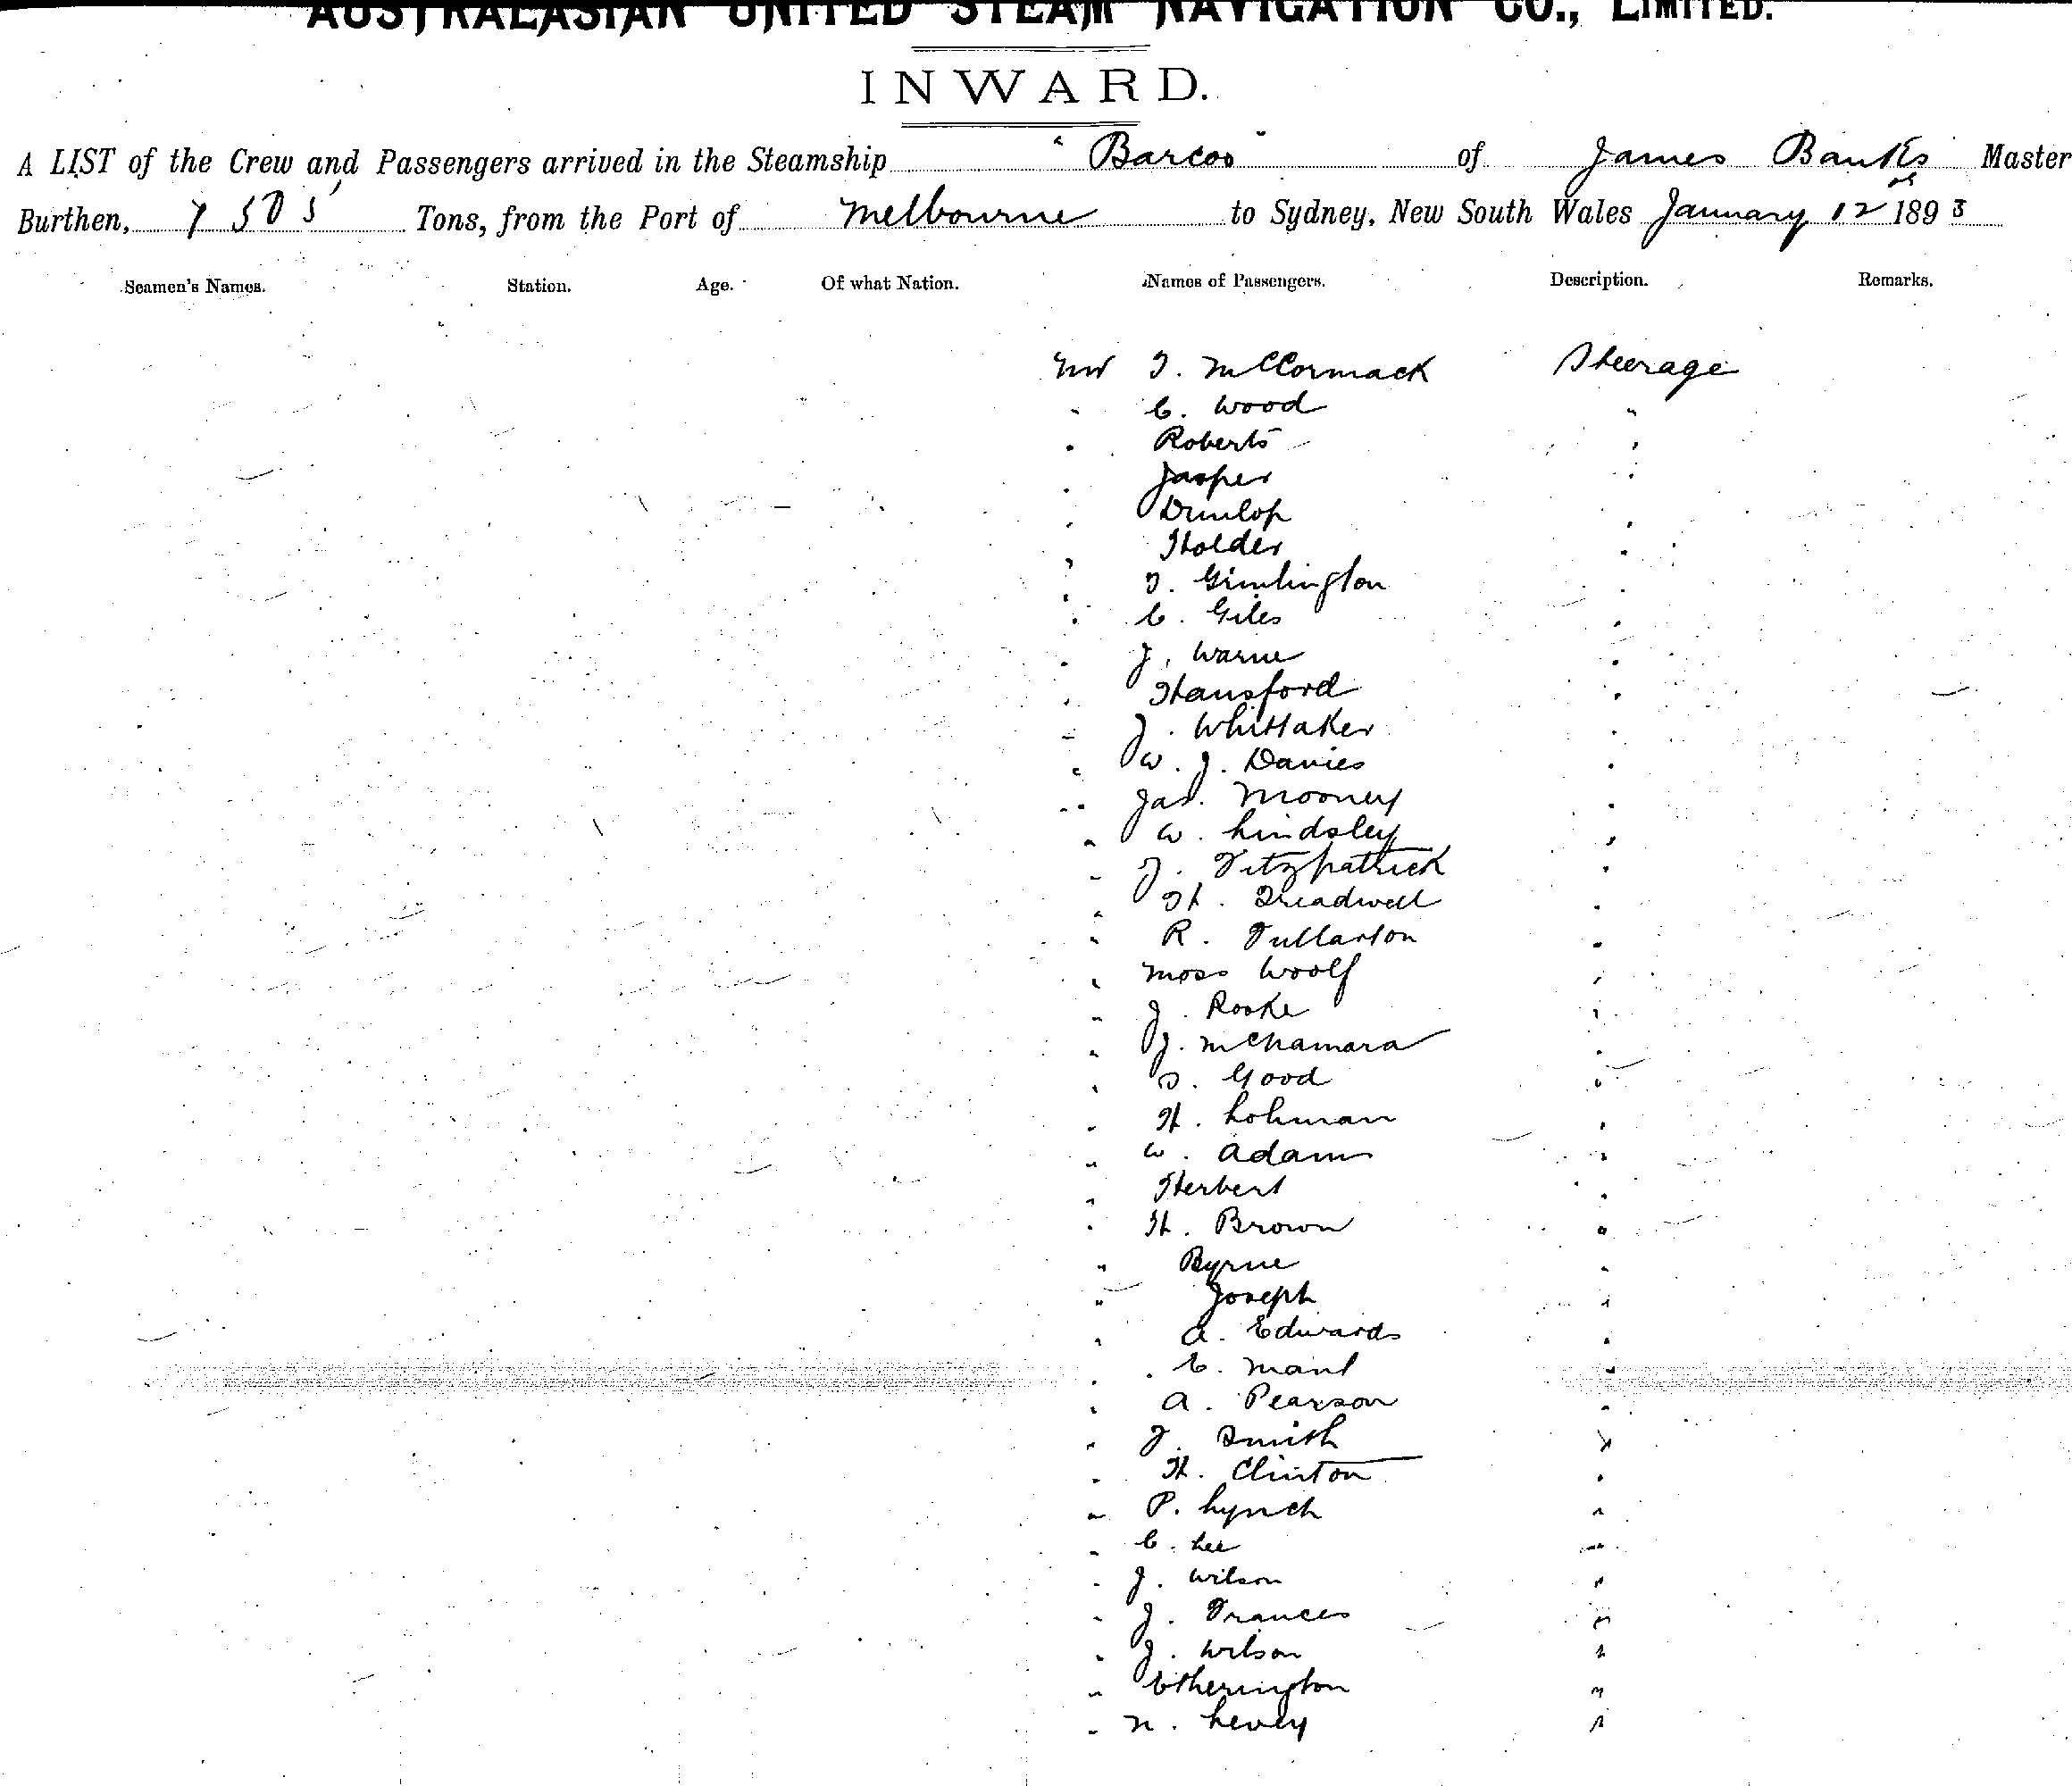 AUSTRALASIAN UNITED STEAM NAVIGATION CO., LIMITED.
INWARD.
A LIST of the Crew and Passengers arrived in the Steamship "Barcoo" of James Banks Master
Burthen, 1505 Tons, from the Port of Melbourne to Sydney, New South Wales January 12th 1893
Seamen's Names. Station. Age. Of what Nation. Names of Passengers. Description. Remarks.
Mr T. McCormack Steerage
" C. Wood "
" Roberts "
" Jasper "
" Dunlop "
" Holder "
" T. Gimlington "
" C. Giles "
" J. Warne "
" Hansford "
" J. Whittaker "
" W. J. Davies "
" Jas. Mooney "
" W. Lindsley "
" J. Fitzpatrick "
" H. Treadwell "
" R. Fullarton "
" Moss Woolf "
" J. Rooke "
" J. McNamara "
" S. Good "
" H. Lohman "
" W. Adams "
" Herbert "
" H. Brown "
" Byrne "
" Joseph "
" A. Edwards "
" E. Mant "
" A. Pearson "
" J. Smith "
" H. Clinton "
" P. Lynch "
" C. Lee "
" J. Wilson "
" J. Frances "
" J. Wilson "
" Etherington "
" N. Levey "